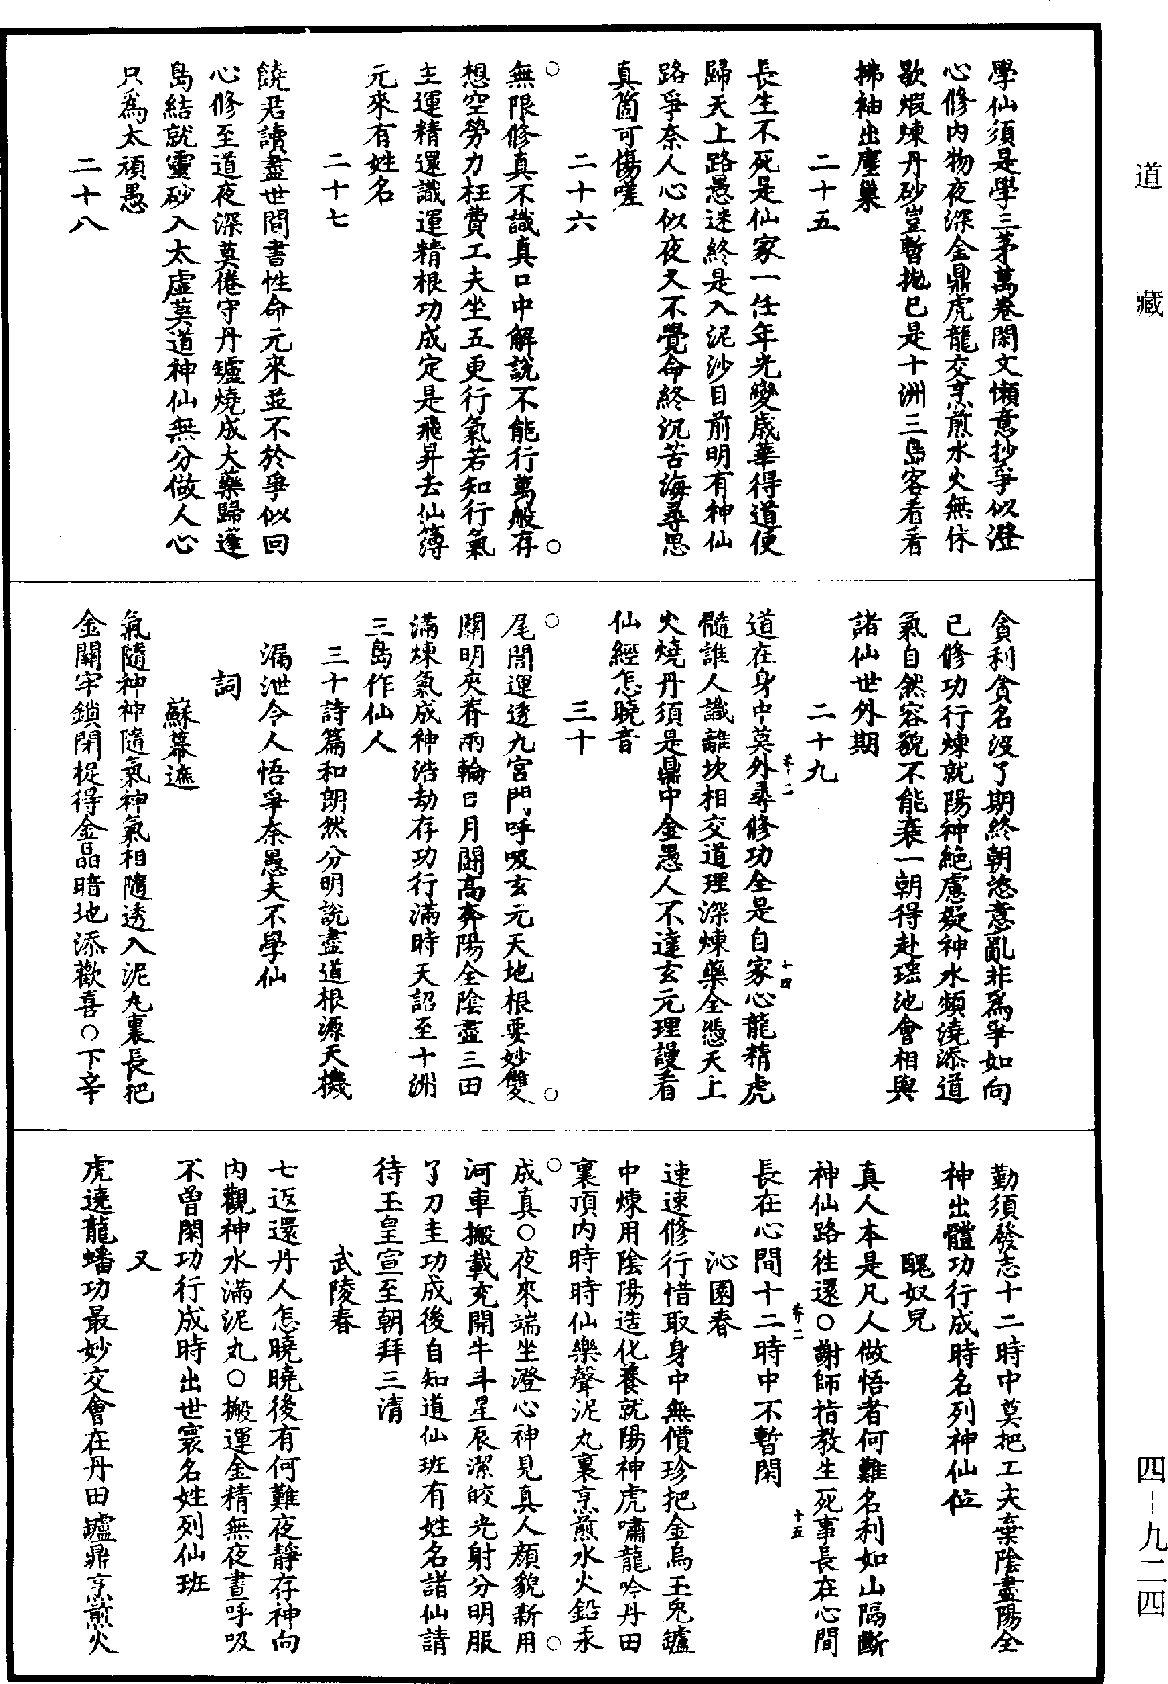 道藏
四-九二四
學仙須是學三茅萬卷閑文懶意抄爭似澄
心修內物夜深金鼎虎龍交烹煎水火無休
歇煆煉丹砂豈暫抛已是十洲三島客看看
拂袖出塵巢
二十五
長生不死是仙家一任年光變歲華得道便
歸天上路愚迷終是入泥沙目前明有神仙
路爭奈人心似夜叉不覺命終沉苦海尋思
真箇可傷嗟
二十六
無限修真不識真口中解說不能行萬般存
想空勞力枉費工夫坐五更行氣若知行氣
主運精還識運精根功成定是飛昇去仙簿
元來有姓名
二十七
饒君讀盡世間書性命元來並不於爭似回
心修至道夜深莫倦守丹爐燒成大藥歸蓬
島結就靈砂入太虛莫道神仙無分做人心
只爲太頑愚
二十八
貪利貪名沒了期終朝恣意亂非爲爭如向
己修功行煉就陽神絕慮凝神水頻澆添道
氣自然容貌不能衰一朝得赴瑤池會相與
諸仙世外期
二十九
道在身中莫外尋修功全是自家心龍精虎
髓誰人識離坎相交道理深煉藥全憑天上
火燒丹須是鼎中金愚人不達玄元理謾看
仙經怎曉音
三十
尾閭運透九宮門呼吸玄元天地根要妙雙
關明夾脊兩輪日月鬭高奔陽全陰盡三田
滿煉氣成神浩劫存功行滿時天詔至十洲
三島作仙人
三十詩篇和朗然分明說盡道根源天機
漏泄令人悟爭奈愚夫不學仙
詞
蘇幕遮
氣隨神神隨氣神氣相隨透入泥丸裏長把
金關牢鎖閉捉得金晶暗地添歡喜○下辛
勤須發志十二時中莫把工夫棄陰盡陽全
神出體功行成時名列神仙位
醜奴兒
真人本是凡人做悟者何難名利如山隔斷
神仙路往還○謝師指教生死事長在心間
長在心間十二時中不暫閑
沁園春
速速修行惜取身中無價珍把金烏玉兔爐
中煉用陰陽造化養就陽神虎嘯龍吟丹田
裏頂內時時仙樂聲泥丸裏烹煎水火鉛汞
成真○夜來端坐澄心神見真人顏貌新用
河車搬載充開牛斗星辰潔皎光射分明服
了刀圭功成後自知道仙班有姓名諸仙請
待玉皇宣至朝拜三清
武陵春
七返還丹人怎曉曉後有何難夜靜存神向
內觀神水滿泥丸○搬運金精無夜晝呼吸
不曾閑功行成時出世寰名姓列仙班
又
虎遶龍蟠功最妙交會在丹田爐鼎烹煎火